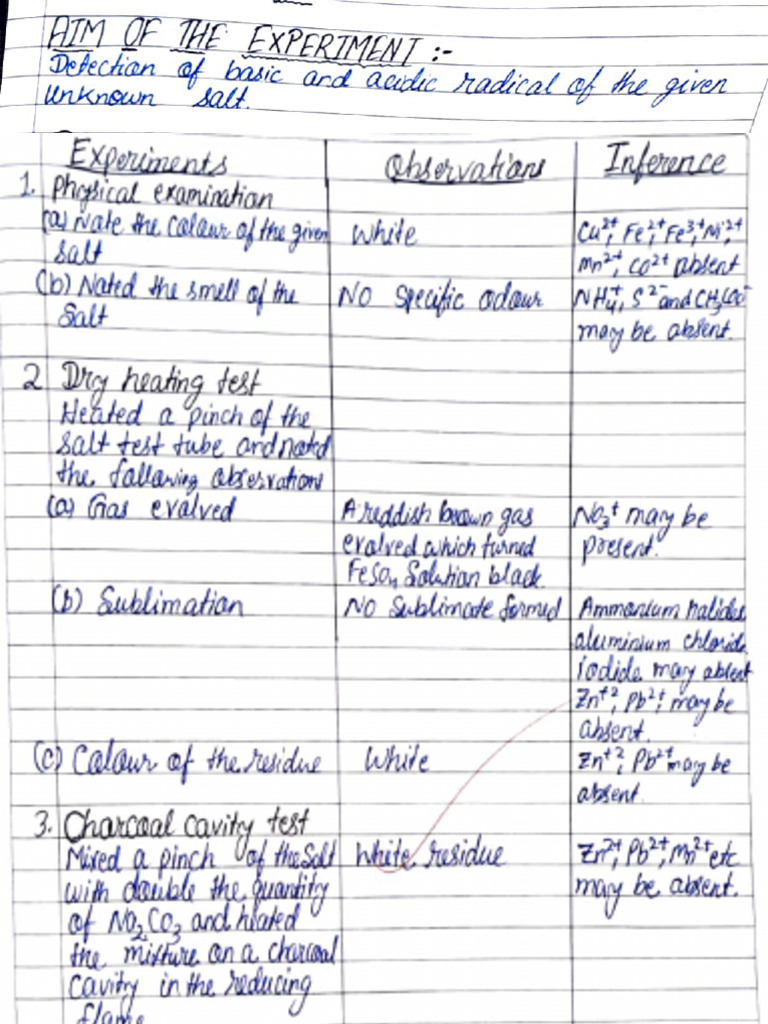 AIM OF THE EXPERIMENT :-
Detection of basic and acidic radical of the given
unknown salt.
Experiments
Observations
Inference
1. Physical examination
(a) Note the colour of the given
salt
White
Cu²⁺, Fe²⁺, Fe³⁺, Ni²⁺,
Mn²⁺, Co²⁺ absent
(b) Noted the smell of the
Salt
NO specific odour
NH₄⁺, S²⁻ and CH₃COO⁻
may be absent.
2 Dry heating test
Heated a pinch of the
salt test tube and noted
the following observations
(a) Gas evolved
A reddish brown gas
evolved which turned
FeSO₄ Solution black
NO₃⁺ may be
present.
(b) Sublimation
No Sublimate formed
Ammonium halides
aluminium chloride
iodide may absent
Zn⁺², Pb²⁺, may be
absent.
(c) Colour of the residue
White
Zn⁺², Pb²⁺ may be
absent.
3. Charcoal cavity test
Mixed a pinch of the Salt
with double the quantity
of Na₂CO₃ and heated
the mixture on a charcoal
cavity in the reducing
flame
White residue
Zn²⁺, Pb²⁺, Mn²⁺ etc
may be absent.